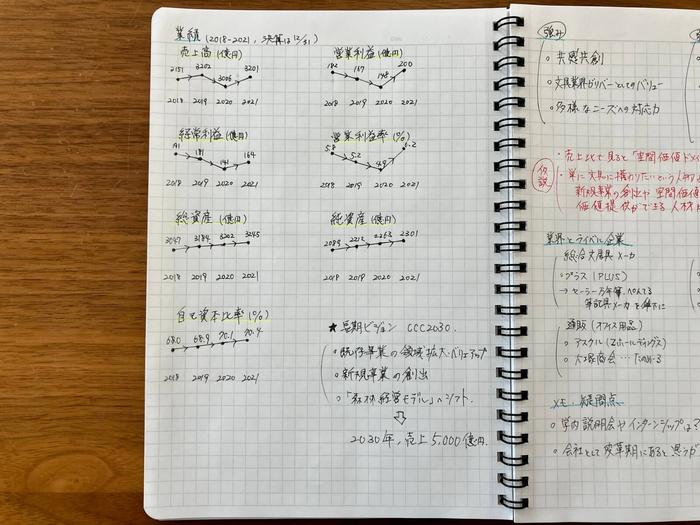 業績 (2018-2021, 決算は12/31)
売上高 (億円)
3151 3202 3006 3201
2018 2019 2020 2021
営業利益 (億円)
182 167 148 200
2018 2019 2020 2021
経常利益 (億円)
191 181 141 164
2018 2019 2020 2021
営業利益率 (%)
5.8 5.2 4.9 6.2
2018 2019 2020 2021
総資産 (億円)
3047 3184 3202 3245
2018 2019 2020 2021
純資産 (億円)
2089 2212 2263 2301
2018 2019 2020 2021
自己資本比率 (%)
68.0 68.9 70.1 70.4
2018 2019 2020 2021
★長期ビジョン CCC2030.
○既存事業の領域拡大・バリューアップ
○新規事業の創出
○「森林経営モデル」へシフト.
⇩
2030年, 売上5,000億円.
強み
○共感共創
○文具業界がリバーとしてのバリュー
○多様なニーズへの対応力
仮説
・売上比で見ると「空間価値ドメイ
・単に文具に携わりたいという人材よ
新規事業の創出や空間価値
価値提供ができる人材
業界とライバル企業
総合文房具メーカ
○プラス (PLUS)
→セーラー万年筆、ぺんてる
筆記具メーカを傘下に
通販 (オフィス用品)
○アスクル (Zホールディングス)
○大塚商会…たのめーる
メモ・疑問点
○学内説明会やインターンシップは?
○会社として変革期にあると思うが